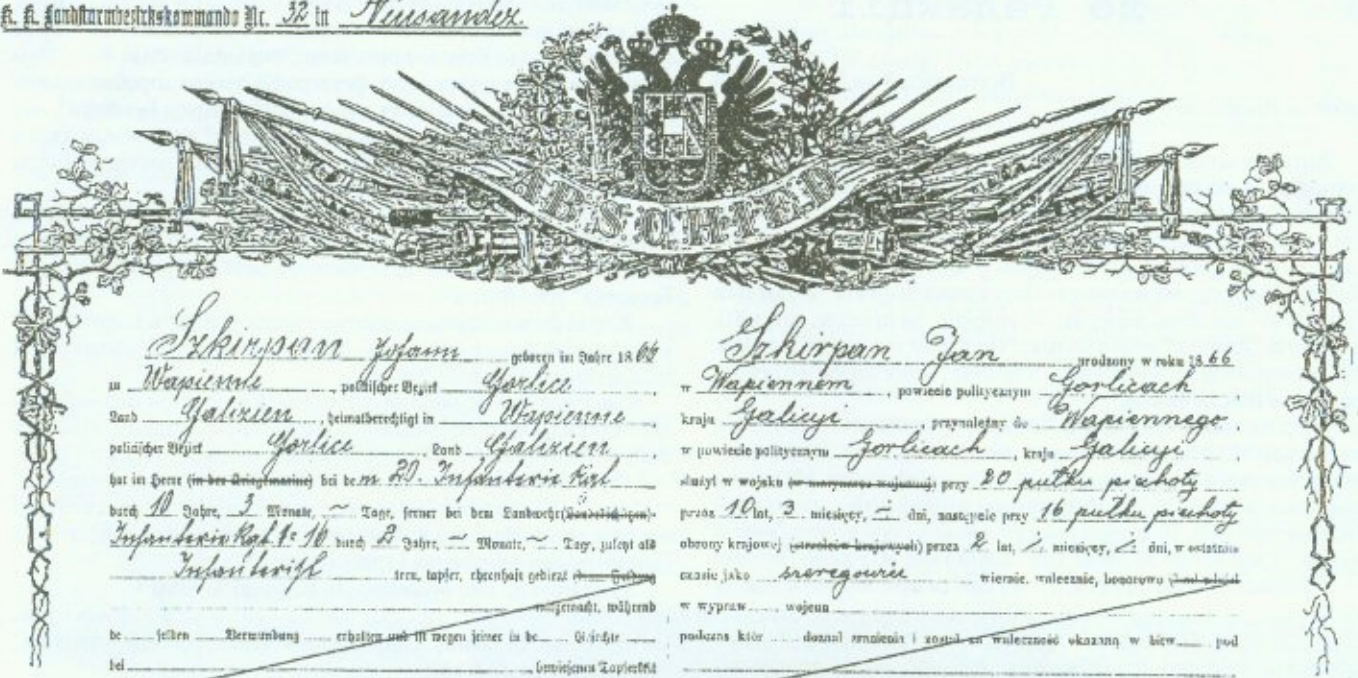 K. K. Landsturmbezirkskommando Nr. 32 in Neusandez.
ABSCHIED
Szkirpan Johann geboren im Jahre 1866
zu Wapienne, politischer Bezirk Gorlice
Land Galizien, heimatberechtigt in Wapienne
politischer Bezirk Gorlice, Land Galizien,
hat im Heere (in der Kriegsmarine) bei dem 20. Infanterie Rgt
durch 10 Jahre, 3 Monate, ~ Tage, ferner bei dem Landwehr
Infanterie Rgt № 16 durch 2 Jahre, ~ Monate, ~ Tage, zuletzt als
Infanterist treu, tapfer, ehrenhaft gedient
mitgemacht, während
be selben Verwundung erhalten und ist wegen seiner in de Gefechte
bei bewiesenen Tapferkeit
Szkirpan Jan urodzony w roku 1866
w Wapiennem, powiecie politycznym Gorlicach
kraju Galicyi, przynależny do Wapiennego,
w powiecie politycznym Gorlicach, kraju Galicyi
służył w wojsku (w marynarce wojennej) przy 20 pułku piechoty
przez 10 lat, 3 miesięcy, ~ dni, następnie przy 16 pułku piechoty
obrony krajowej (strzelców krajowych) przez 2 lat, miesięcy, dni, w ostatnim
czasie jako szeregowiec wiernie, walecznie, honorowo
w wypraw wojenn
podczas któr doznał zranienia i został za waleczność okazaną w bitw pod